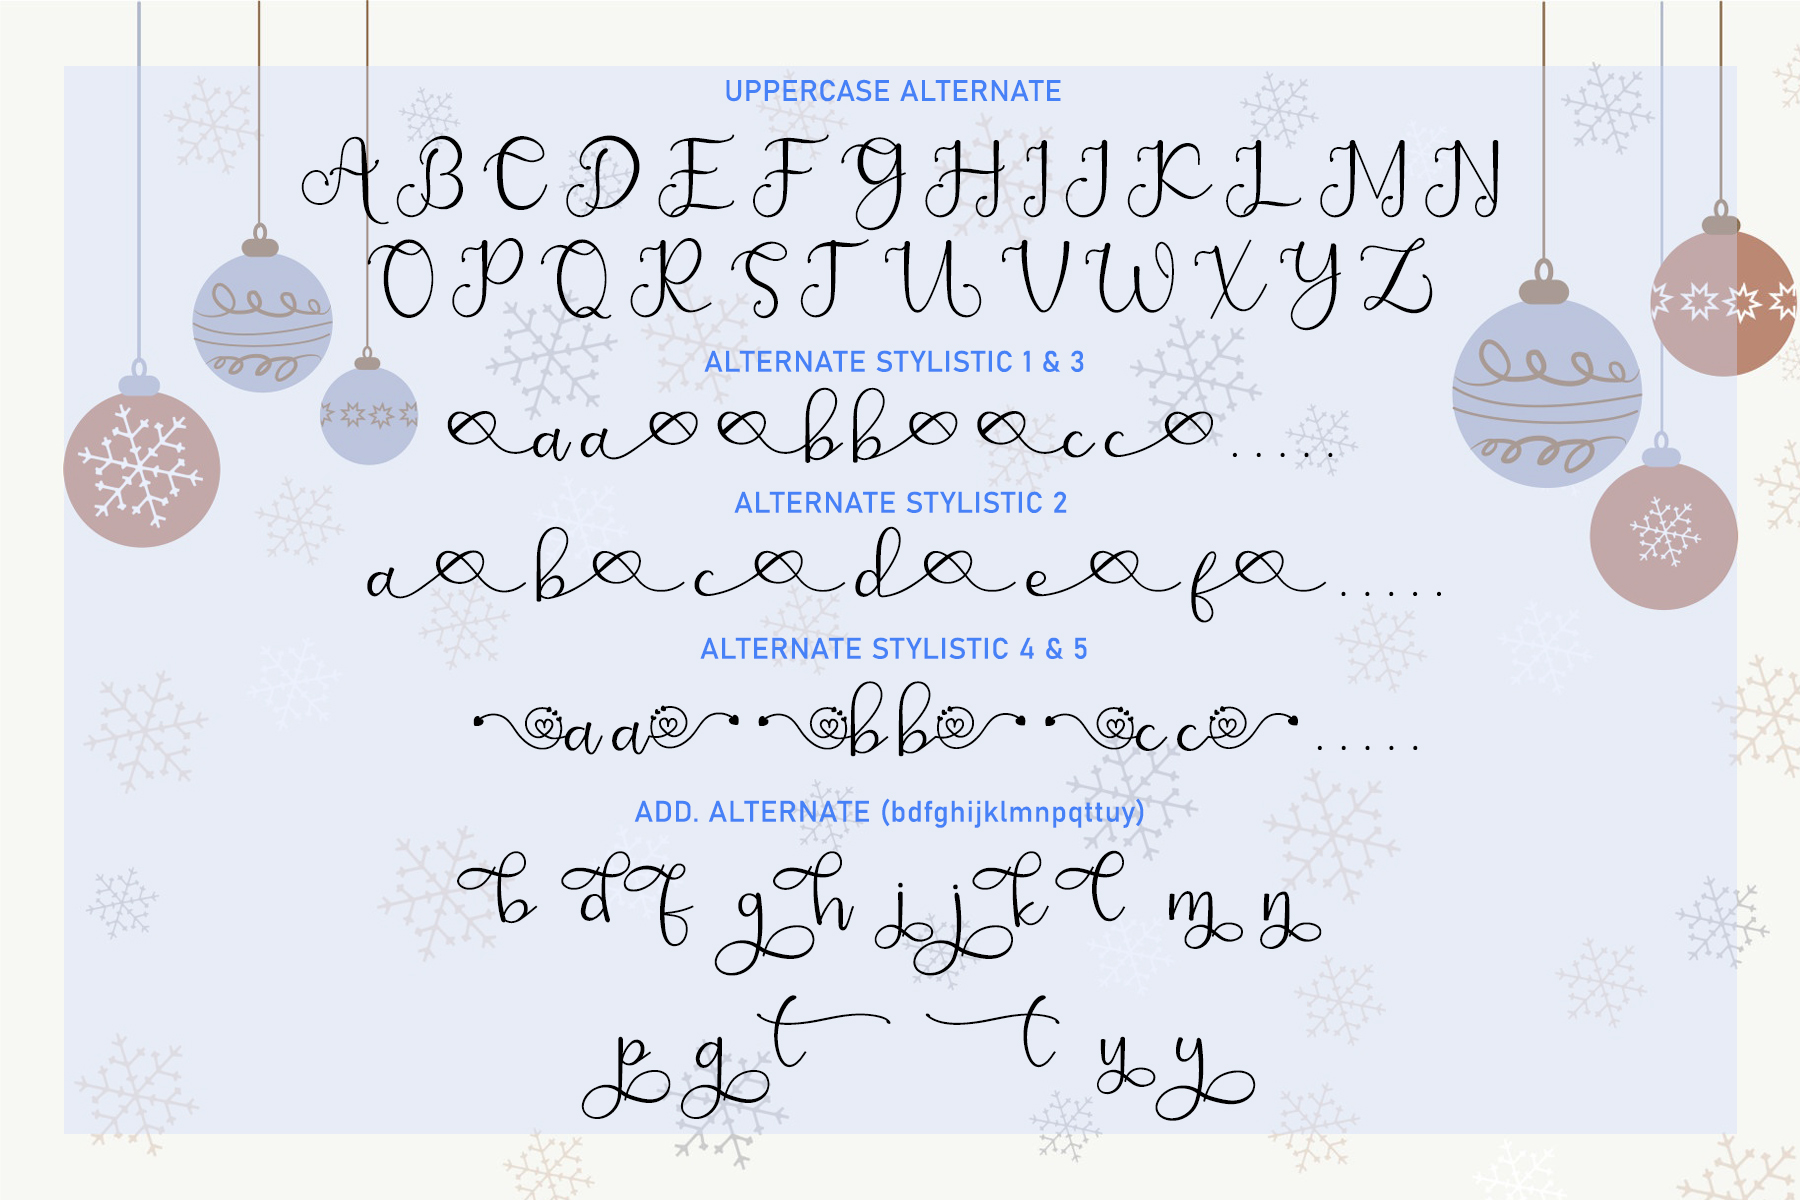 UPPERCASE ALTERNATE
A B C D E F G H I J K L M N
O P Q R S T U V W X Y Z
ALTERNATE STYLISTIC 1 & 3
a a b b c c .....
ALTERNATE STYLISTIC 2
a b c d e f .....
ALTERNATE STYLISTIC 4 & 5
a a b b c c .....
ADD. ALTERNATE (bdfghijklmnpqttuy)
b d f g h i j k l m n
p q t t y y